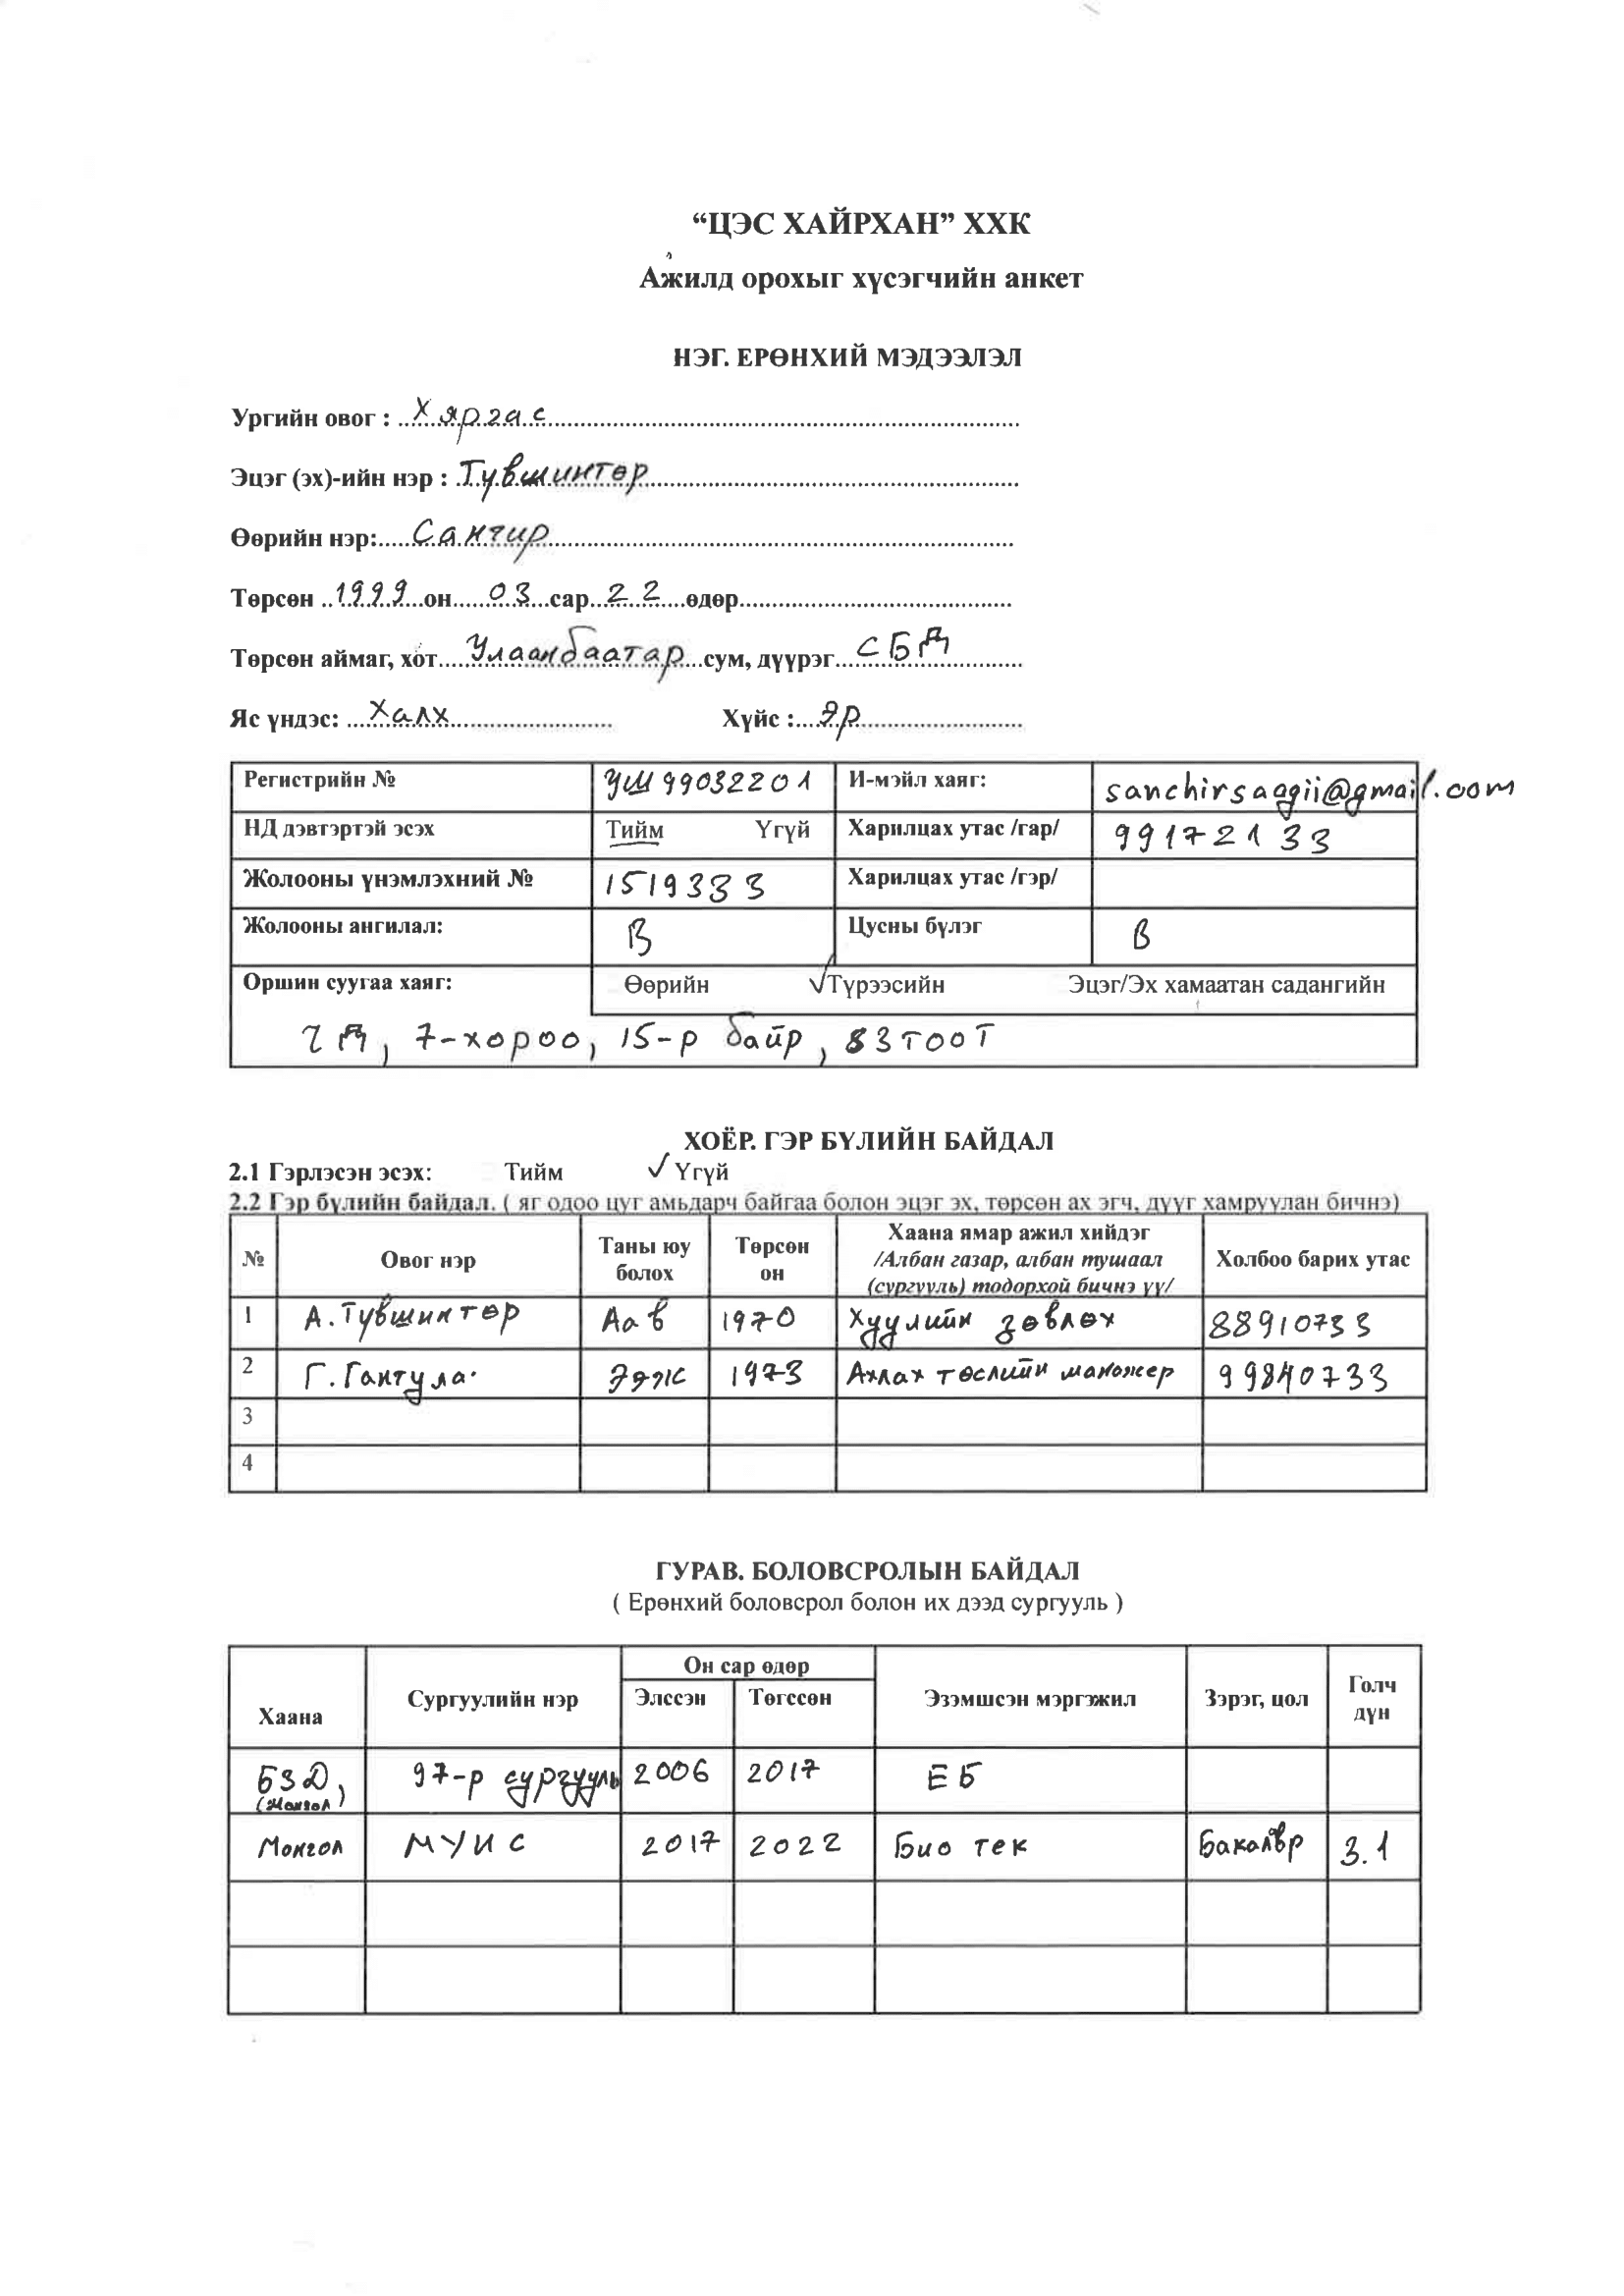 “ЦЭС ХАЙРХАН” ХХК
Ажилд орохыг хүсэгчийн анкет
НЭГ. ЕРӨНХИЙ МЭДЭЭЛЭЛ
Ургийн овог : Хяргас
Эцэг (эх)-ийн нэр : Түвшинтөр
Өөрийн нэр: Санчир
Төрсөн 1999 он 03 сар 22 өдөр
Төрсөн аймаг, хот Улаанбаатар сум, дүүрэг СБД
Яс үндэс: Халх Хүйс : Эр
Регистрийн № УШ99032201 И-мэйл хаяг: sanchirsaagii@gmail.com
НД дэвтэртэй эсэх Тийм Үгүй Харилцах утас /гар/ 99172133
Жолооны үнэмлэхний № 1519333 Харилцах утас /гэр/
Жолооны ангилал: B Цусны бүлэг B
Оршин суугаа хаяг: Өөрийн ✓Түрээсийн Эцэг/Эх хамаатан садангийн
ЧД, 7-хороо, 15-р байр, 83тоот
ХОЁР. ГЭР БҮЛИЙН БАЙДАЛ
2.1 Гэрлэсэн эсэх: Тийм ✓ Үгүй
2.2 Гэр бүлийн байдал. ( яг одоо цуг амьдарч байгаа болон эцэг эх, төрсөн ах эгч, дүүг хамруулан бичнэ)
№ Овог нэр Таны юу болох Төрсөн он Хаана ямар ажил хийдэг /Албан газар, албан тушаал (сургууль) тодорхой бичнэ үү/ Холбоо барих утас
1 А.Түвшинтөр Аав 1970 Хуулийн зөвлөх 88910733
2 Г.Гантула Ээж 1973 Ахлах төслийн манежер 99840733
3
4
ГУРАВ. БОЛОВСРОЛЫН БАЙДАЛ
( Ерөнхий боловсрол болон их дээд сургууль )
Хаана Сургуулийн нэр Он сар өдөр Элссэн Төгссөн Эзэмшсэн мэргэжил Зэрэг, цол Голч дүн
БЗД, (Монгол) 97-р сургууль 2006 2017 ЕБ
Монгол МУИС 2017 2022 Био тек Бакалавр 3.1